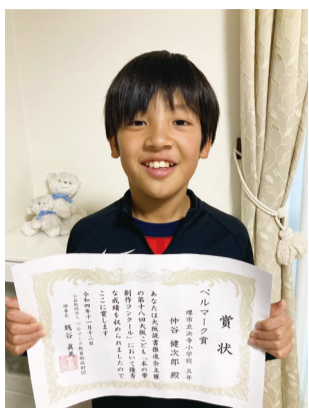 賞状
ベルマーク賞
堺市立浜寺小学校 五年
仲谷 健次郎 殿
あなたは大阪読書推進会主催
の第十八回大阪こども「本の帯
創作コンクール」において優秀
な成績を収められましたので
ここに賞します
令和四年十一月十二日
公益財団法人 ベルマーク教育助成財団
理事長 銭谷 眞美